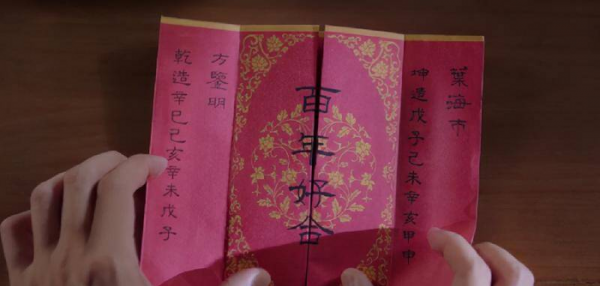 葉海市
坤造戊子己未辛亥甲申
百年好合
方鑒明
乾造辛巳己亥辛未戊子